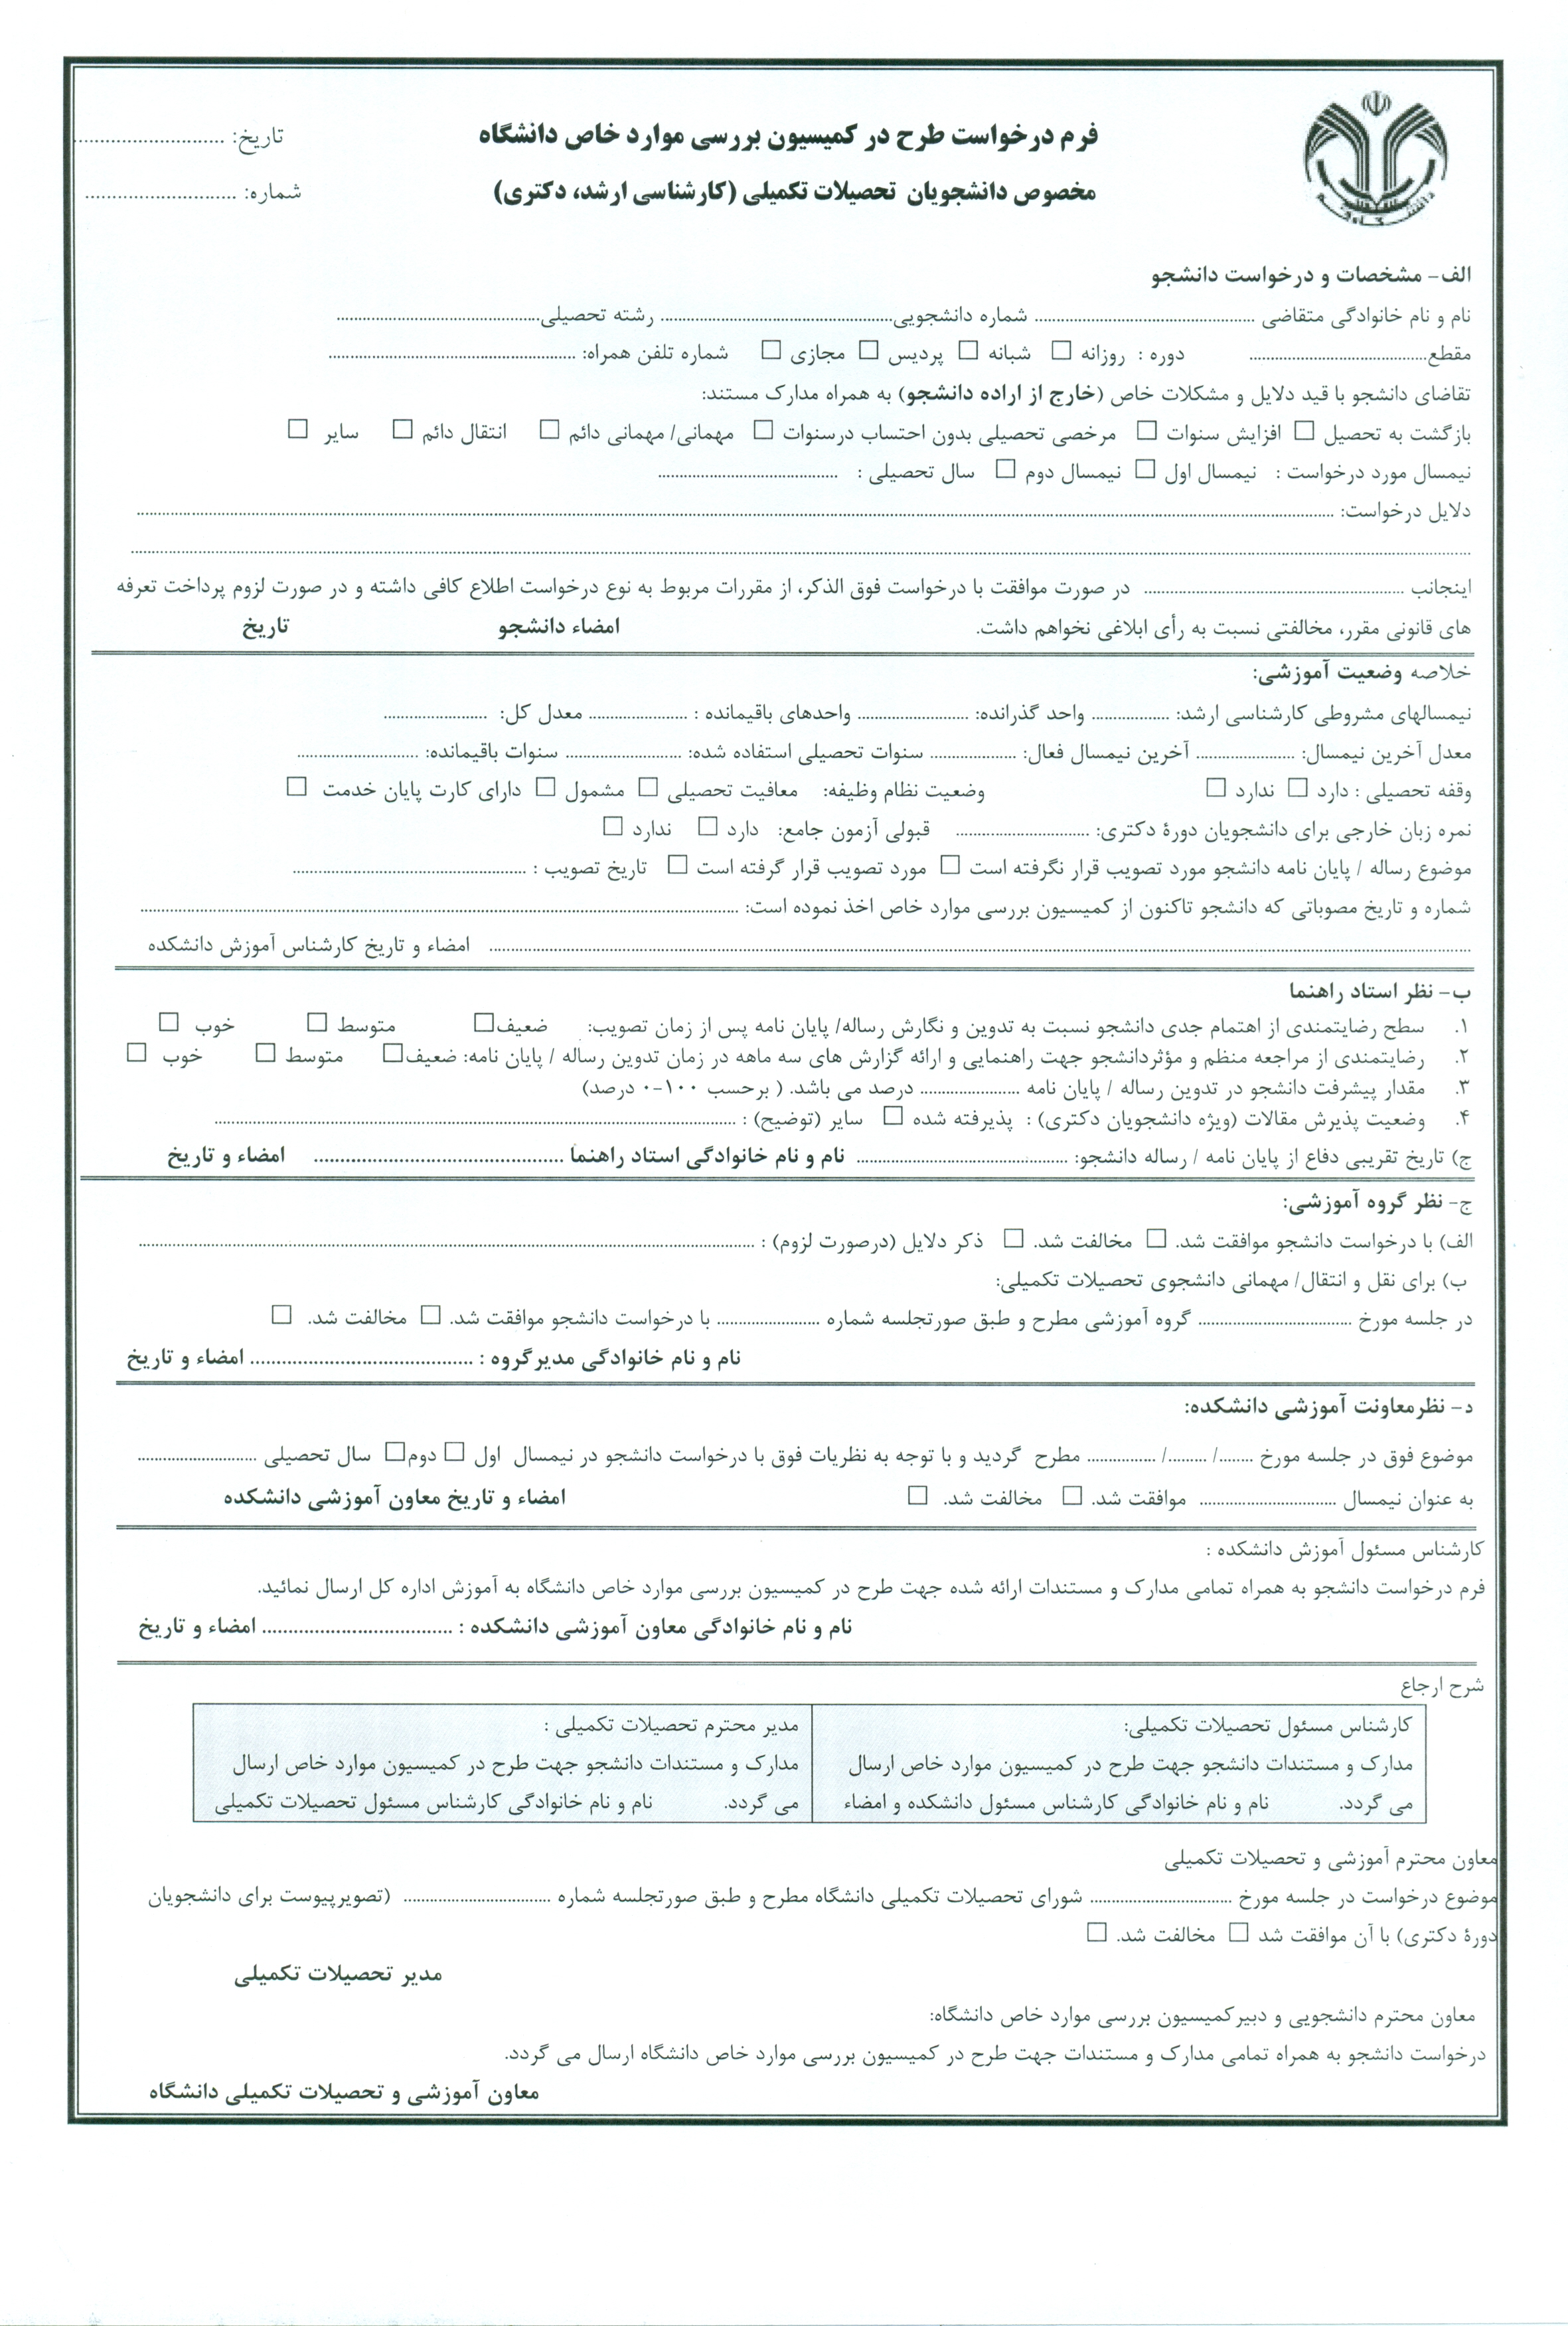 فرم درخواست طرح در کمیسیون بررسی موارد خاص دانشگاه
تاریخ: ..........................
مخصوص دانشجویان تحصیلات تکمیلی (کارشناسی ارشد، دکتری)
شماره: ..........................
الف- مشخصات و درخواست دانشجو
نام و نام خانوادگی متقاضی .......................... شماره دانشجویی.......................... رشته تحصیلی..........................
مقطع.......................... دوره : روزانه □ شبانه □ پردیس □ مجازی □ شماره تلفن همراه: ..........................
تقاضای دانشجو با قید دلایل و مشکلات خاص (خارج از اراده دانشجو) به همراه مدارک مستند:
بازگشت به تحصیل □ افزایش سنوات □ مرخصی تحصیلی بدون احتساب درسنوات □ مهمانی/ مهمانی دائم □ انتقال دائم □ سایر □
نیمسال مورد درخواست : نیمسال اول □ نیمسال دوم □ سال تحصیلی : ..........................
دلایل درخواست: ..........................
..........................
اینجانب .......................... در صورت موافقت با درخواست فوق الذکر، از مقررات مربوط به نوع درخواست اطلاع کافی داشته و در صورت لزوم پرداخت تعرفه
های قانونی مقرر، مخالفتی نسبت به رأی ابلاغی نخواهم داشت. امضاء دانشجو تاریخ
خلاصه وضعیت آموزشی:
نیمسالهای مشروطی کارشناسی ارشد: ................ واحد گذرانده: ................ واحدهای باقیمانده : ................ معدل کل: ................
معدل آخرین نیمسال: ................ آخرین نیمسال فعال: ................ سنوات تحصیلی استفاده شده: ................ سنوات باقیمانده: ................
وقفه تحصیلی : دارد □ ندارد □ وضعیت نظام وظیفه: معافیت تحصیلی □ مشمول □ دارای کارت پایان خدمت □
نمره زبان خارجی برای دانشجویان دورۀ دکتری: ................ قبولی آزمون جامع: دارد □ ندارد □
موضوع رساله / پایان نامه دانشجو مورد تصویب قرار نگرفته است □ مورد تصویب قرار گرفته است □ تاریخ تصویب : ..........................
شماره و تاریخ مصوباتی که دانشجو تاکنون از کمیسیون بررسی موارد خاص اخذ نموده است: ..........................
.......................... امضاء و تاریخ کارشناس آموزش دانشکده
ب- نظر استاد راهنما
۱. سطح رضایتمندی از اهتمام جدی دانشجو نسبت به تدوین و نگارش رساله/ پایان نامه پس از زمان تصویب: ضعیف□ متوسط □ خوب □
۲. رضایتمندی از مراجعه منظم و مؤثردانشجو جهت راهنمایی و ارائه گزارش های سه ماهه در زمان تدوین رساله / پایان نامه: ضعیف□ متوسط □ خوب □
۳. مقدار پیشرفت دانشجو در تدوین رساله / پایان نامه ................ درصد می باشد. ( برحسب ۱۰۰-۰ درصد)
۴. وضعیت پذیرش مقالات (ویژه دانشجویان دکتری) : پذیرفته شده □ سایر (توضیح) : ..........................
ج) تاریخ تقریبی دفاع از پایان نامه / رساله دانشجو: .......................... نام و نام خانوادگی استاد راهنما .......................... امضاء و تاریخ
ج- نظر گروه آموزشی:
الف) با درخواست دانشجو موافقت شد. □ مخالفت شد. □ ذکر دلایل (درصورت لزوم) : ..........................
ب) برای نقل و انتقال/ مهمانی دانشجوی تحصیلات تکمیلی:
در جلسه مورخ .......................... گروه آموزشی مطرح و طبق صورتجلسه شماره ................ با درخواست دانشجو موافقت شد. □ مخالفت شد. □
نام و نام خانوادگی مدیرگروه : .......................... امضاء و تاریخ
د- نظرمعاونت آموزشی دانشکده:
موضوع فوق در جلسه مورخ ......./ ......../ ................ مطرح گردید و با توجه به نظریات فوق با درخواست دانشجو در نیمسال اول □ دوم□ سال تحصیلی ................
به عنوان نیمسال .......................... موافقت شد. □ مخالفت شد. □ امضاء و تاریخ معاون آموزشی دانشکده
کارشناس مسئول آموزش دانشکده :
فرم درخواست دانشجو به همراه تمامی مدارک و مستندات ارائه شده جهت طرح در کمیسیون بررسی موارد خاص دانشگاه به آموزش اداره کل ارسال نمائید.
نام و نام خانوادگی معاون آموزشی دانشکده : .......................... امضاء و تاریخ
شرح ارجاع
کارشناس مسئول تحصیلات تکمیلی:
مدارک و مستندات دانشجو جهت طرح در کمیسیون موارد خاص ارسال
می گردد. نام و نام خانوادگی کارشناس مسئول دانشکده و امضاء
مدیر محترم تحصیلات تکمیلی :
مدارک و مستندات دانشجو جهت طرح در کمیسیون موارد خاص ارسال
می گردد. نام و نام خانوادگی کارشناس مسئول تحصیلات تکمیلی
معاون محترم آموزشی و تحصیلات تکمیلی
موضوع درخواست در جلسه مورخ .......................... شورای تحصیلات تکمیلی دانشگاه مطرح و طبق صورتجلسه شماره .......................... (تصویرپیوست برای دانشجویان
دورۀ دکتری) با آن موافقت شد □ مخالفت شد. □
مدیر تحصیلات تکمیلی
معاون محترم دانشجویی و دبیرکمیسیون بررسی موارد خاص دانشگاه:
درخواست دانشجو به همراه تمامی مدارک و مستندات جهت طرح در کمیسیون بررسی موارد خاص دانشگاه ارسال می گردد.
معاون آموزشی و تحصیلات تکمیلی دانشگاه